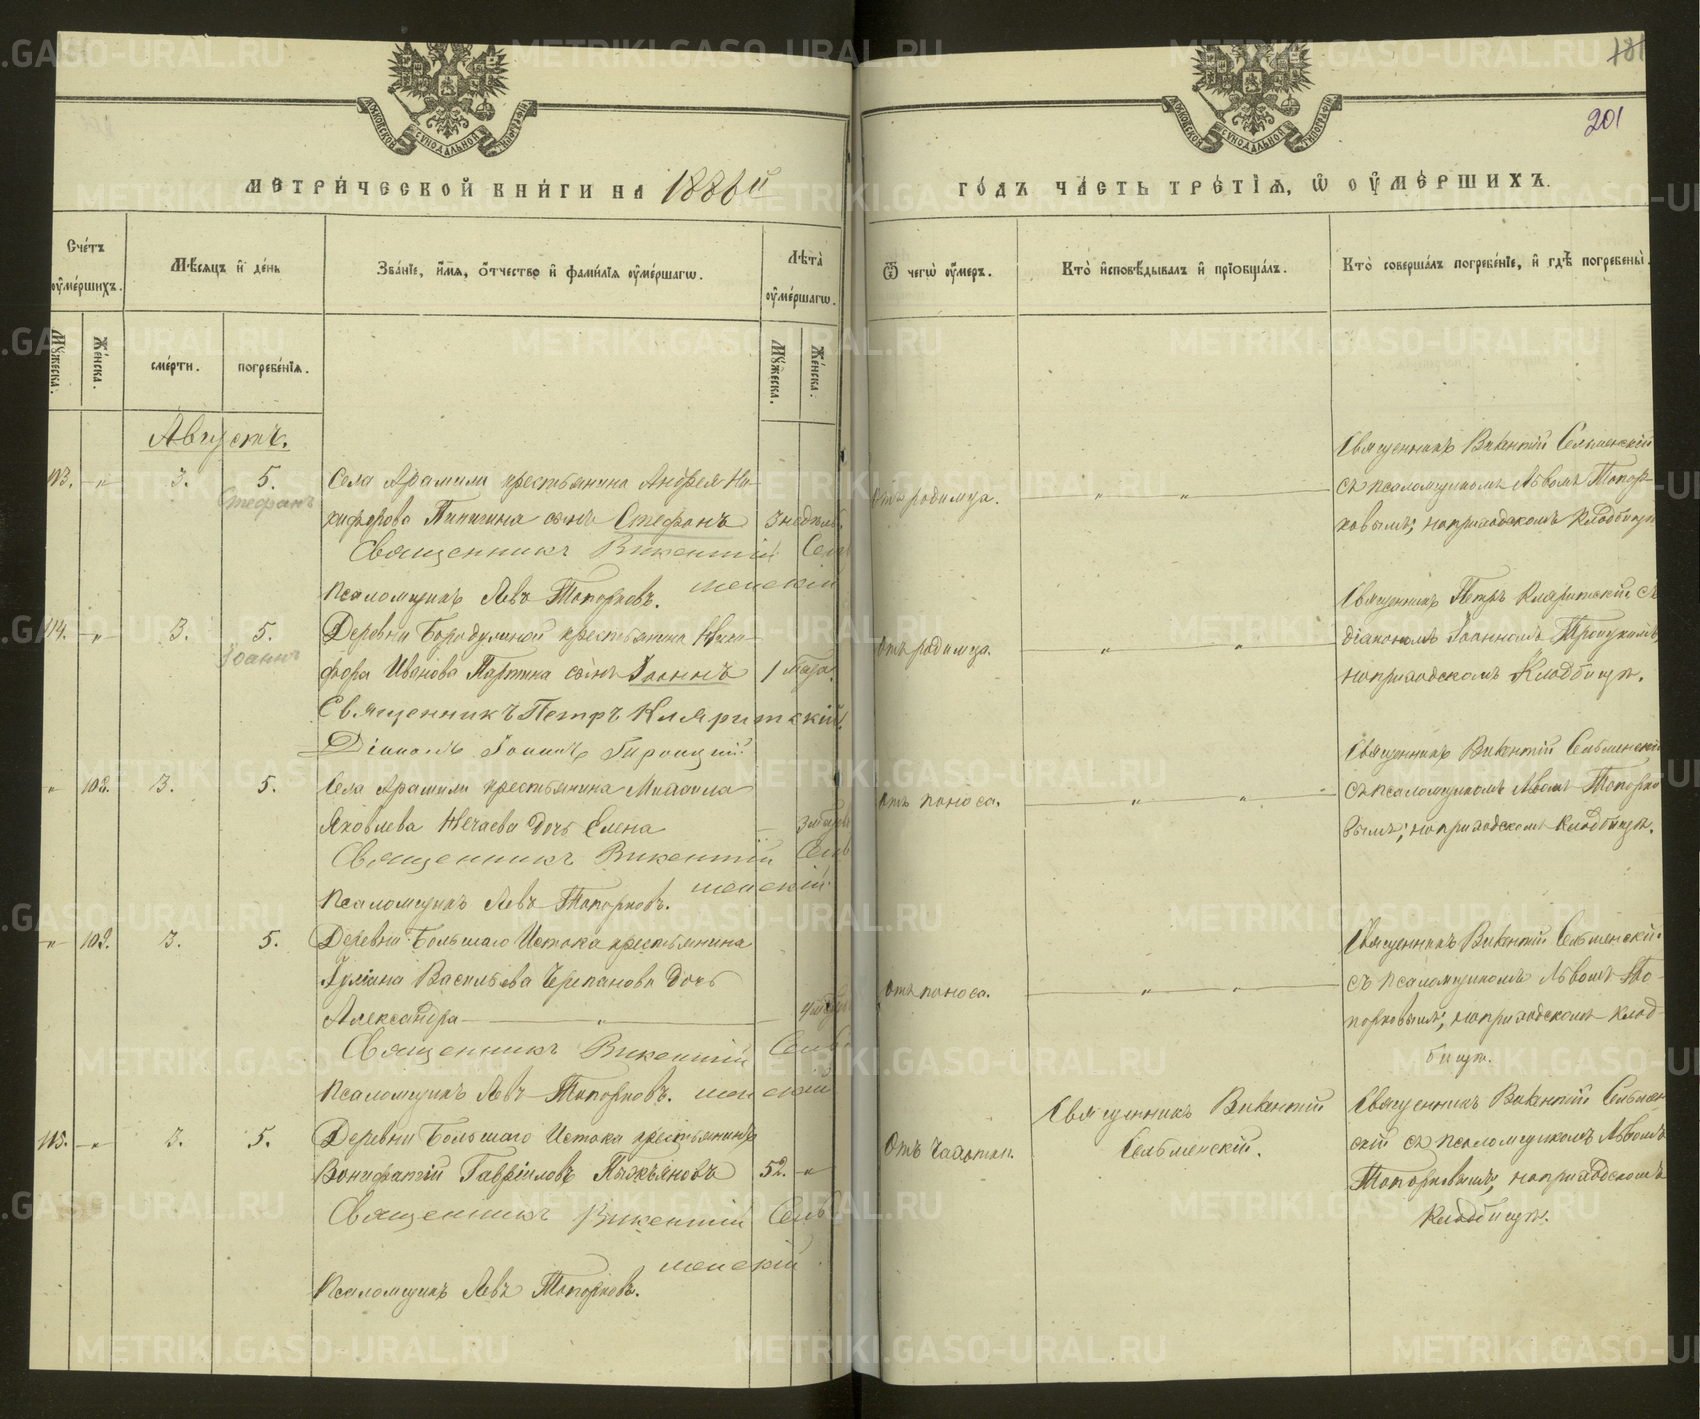 181
201
МОСКОВСКОЙ СѴНОДАЛЬНОЙ ТИПОГРАФІИ
МОСКОВСКОЙ СѴНОДАЛЬНОЙ ТИПОГРАФІИ
МЕТРИ́ЧЕСКОЙ КНИ́ГИ НА 1886й
ГО́ДЪ ЧА́СТЬ ТРЕ́ТІѦ, Ѡ҆ ОУ҆МЕ́РШИХЪ.
Сче́тъ оу҆ме́ршихъ.
Мѣ́сяцъ и҆ де́нь
Зва́нїе, и҆́мѧ, ѻ҆́тчество и҆ фами́лїѧ оу҆ме́ршагѡ.
Лѣ́та оу҆ме́ршагѡ.
Ѿ чегѡ̀ оу҆́меръ.
Кто̀ и҆сповѣ́дывалъ и҆ прїѡбща́лъ.
Кто̀ соверша́лъ погребе́нїе, и҆ гдѣ̀ погребены̀.
Мꙋ́жеска.
Же́нска.
сме́рти.
погребе́нїѧ.
Мꙋ́жеска.
Же́нска.
Августъ.
113. - " - 3. 5.
Стефанъ
Села Арамили крестьянина Андрея Ни-
кифорова Пинигина сынъ Стефанъ 3 недѣль
Священникъ Викентій Сель
менскій
Псаломщикъ Левъ Топорковъ.
Отъ родимца.
" "
Священникъ Викентій Сельменскій
съ псаломщикомъ Львомъ Топор-
ковымъ; на приходскомъ кладбищѣ
114. - " - 3. 5.
Іоаннъ
Деревни Бородулиной крестьянина Ники-
фора Иванова Паркина сынъ Іоаннъ 1 мѣсяц.
Священникъ Петръ Кляритскій
Діаконъ Іоаннъ Троицкій
Отъ родимца.
" "
Священникъ Петръ Кляритскій съ
діакономъ Іоанномъ Троицкимъ,
на приходскомъ Кладбищѣ.
" 108. 3. 5.
Села Арамили крестьянина Михаила
Яковлева Нечаева дочь Елена - 3 мѣсяц
Священникъ Викентій Сель
менскій
Псаломщикъ Левъ Топорковъ.
Отъ поноса.
" "
Священникъ Викентій Сельменскій
съ псаломщикомъ Львомъ Топорко
вымъ; на приходскомъ кладбищѣ.
- " - 109. 3. 5.
Деревни Большаго Истока крестьянина
Іуліана Васильева Черепанова дочь
Александра - " -
Священникъ Викентій Сель
менскій
Псаломщикъ Левъ Топорковъ.
Отъ поноса.
" "
Священникъ Викентій Сельменскій
съ псаломщикомъ Львомъ То-
порковымъ; на приходскомъ клад-
бищѣ.
115. - " - 3. 5.
Деревни Большаго Истока крестьянинъ
Вонифатій Гавріиловъ 52. - "
Священникъ Викентій Сель
менскій
Псаломщикъ Левъ Топорковъ.
Отъ чахотки.
Священникъ Викентій
Сельменскій.
Священникъ Викентій Сельмен
скій съ псаломщикомъ Львомъ
Топорковымъ, на приходскомъ
Кладбищѣ.